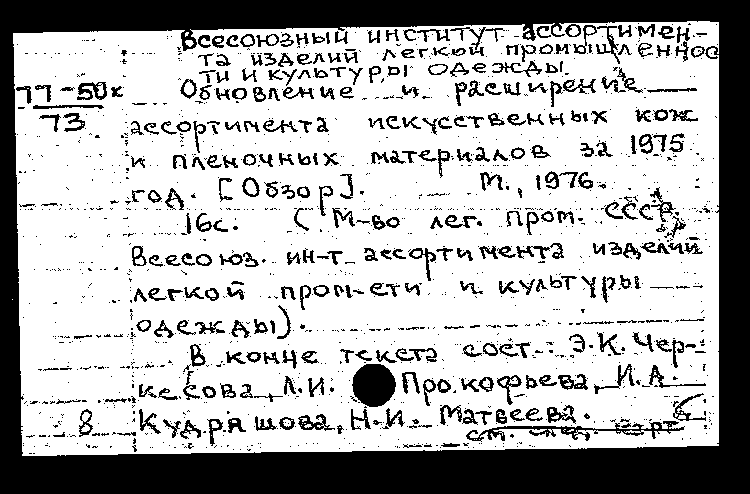 Всесоюзный институт ассортимен-
та изделий легкой промышленнос
ти и культуры одежды.
77-50к
73
Обновление и расширение
ассортимента искусственных кож
и пленочных материалов за 1975
год. [Обзор]. М., 1976.
16с. (М-во лег. пром. СССР.
Всесоюз. ин-т ассортимента изделий
легкой пром-сти и культуры
одежды).
В конце текста сост.: Э.К. Чер-
кесова, Л.И. Прокофьева, И.А.
8 Кудряшова, Н.И. Матвеева.
см. след. карт